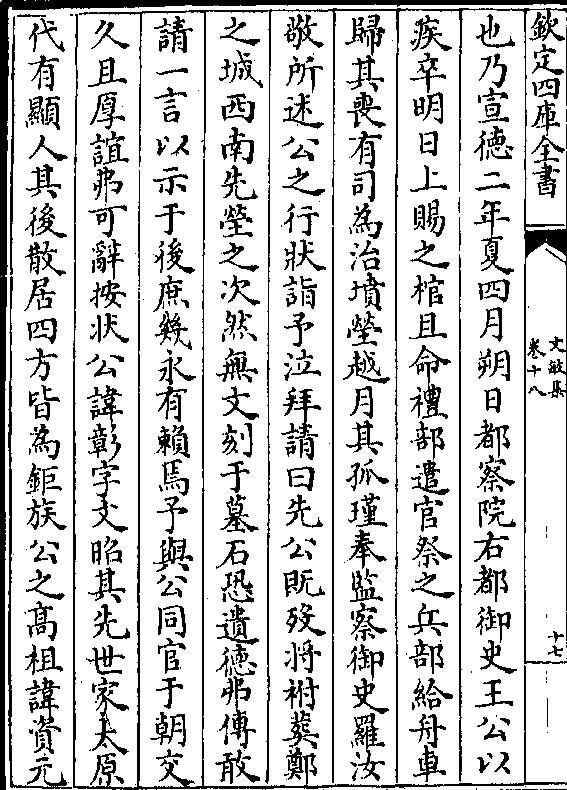 欽定四庫全書
文敏集
卷十八
十七
也乃宣德二年夏四月朔日都察院右都御史王公以
疾卒明日上賜之棺且命禮部遣官祭之兵部給舟車
歸其喪有司為治墳塋越月其孤瑾奉監察御史羅汝
敬所述公之行狀詣予泣拜請曰先公既歿將祔葬鄭
之城西南先塋之次然無文刻于墓石恐遺德弗傳敢
請一言以示于後庶幾永有賴焉予與公同官于朝交
久且厚誼弗可辭按狀公諱彰字文昭其先世家太原
代有顯人其後散居四方皆為鉅族公之高祖諱資元